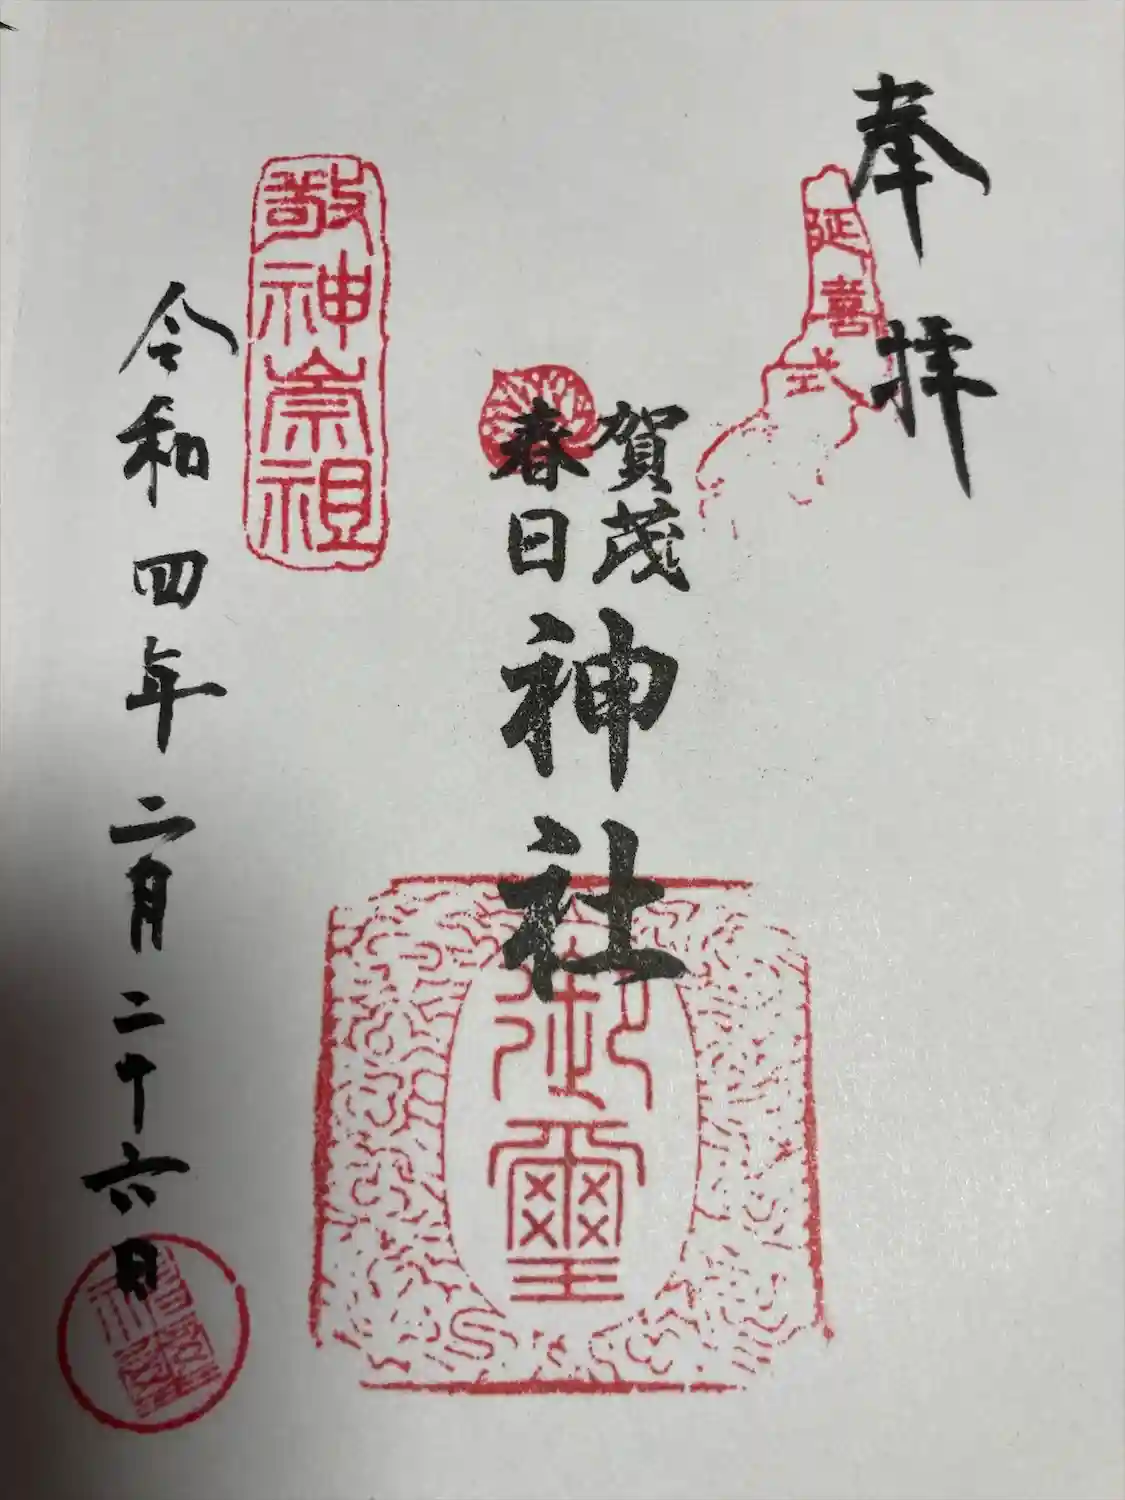 奉拝
延喜式
賀茂
春日
神社
御璽
敬神崇祖
令和四年二月二十六日